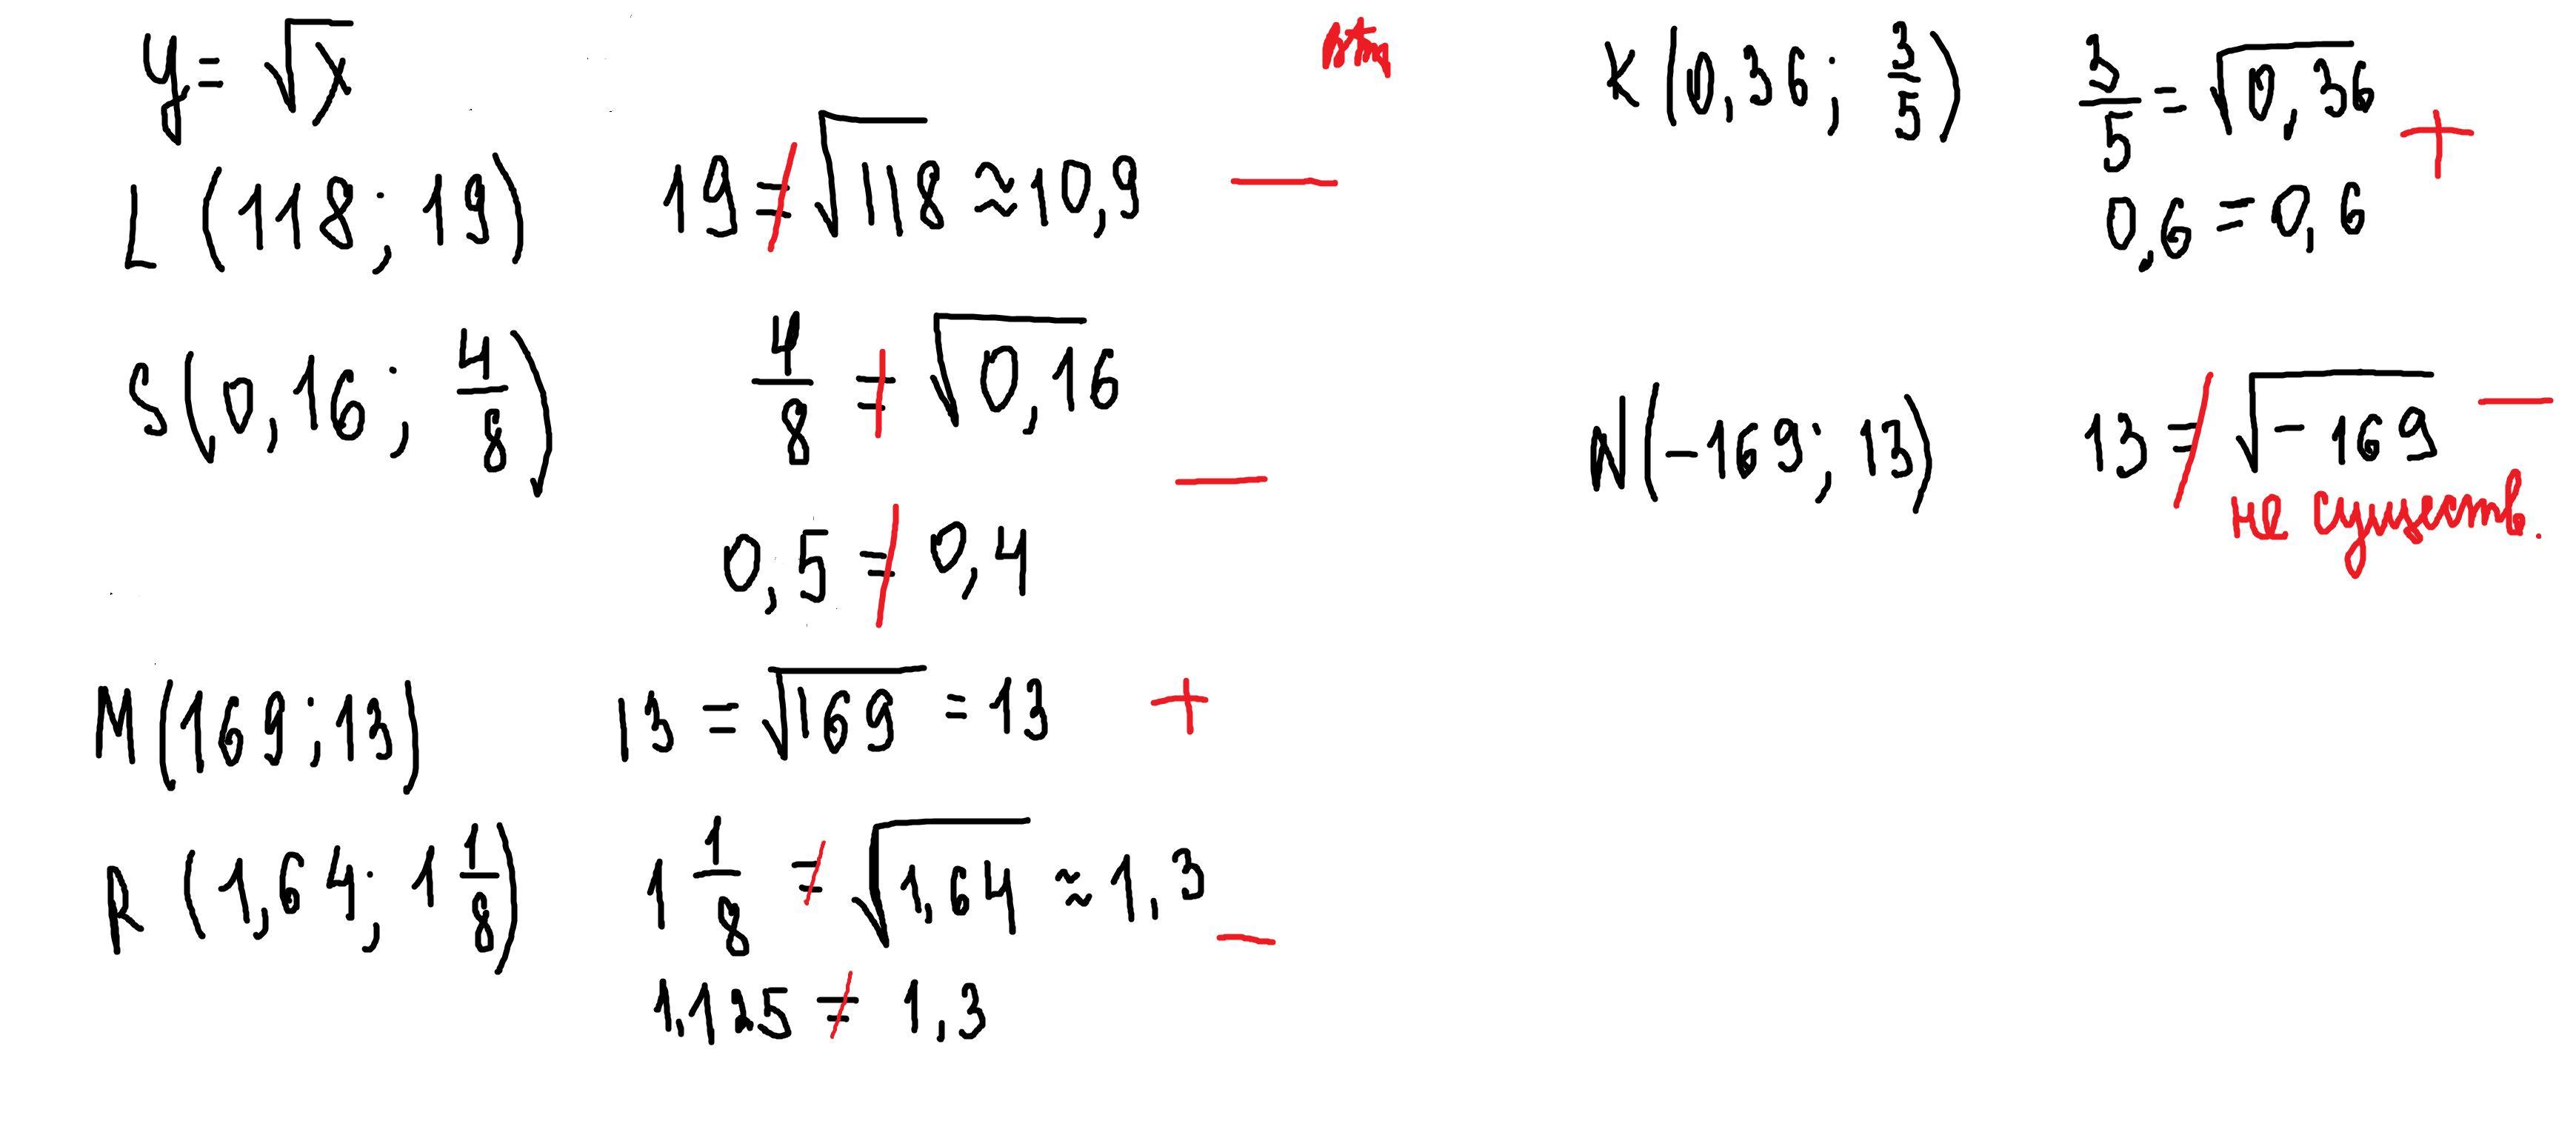 y = √x
L (118; 19) 19 ≠ √118 ≈ 10,9 —
S (0,16; 4/8) 4/8 ≠ √0,16
0,5 ≠ 0,4 —
M (169; 13) 13 = √169 = 13 +
R (1,64; 1 1/8) 1 1/8 ≠ √1,64 ≈ 1,3 —
1,125 ≠ 1,3
K (0,36; 3/5) 3/5 = √0,36 +
0,6 = 0,6
N (-169; 13) 13 ≠ √-169 —
не существ.